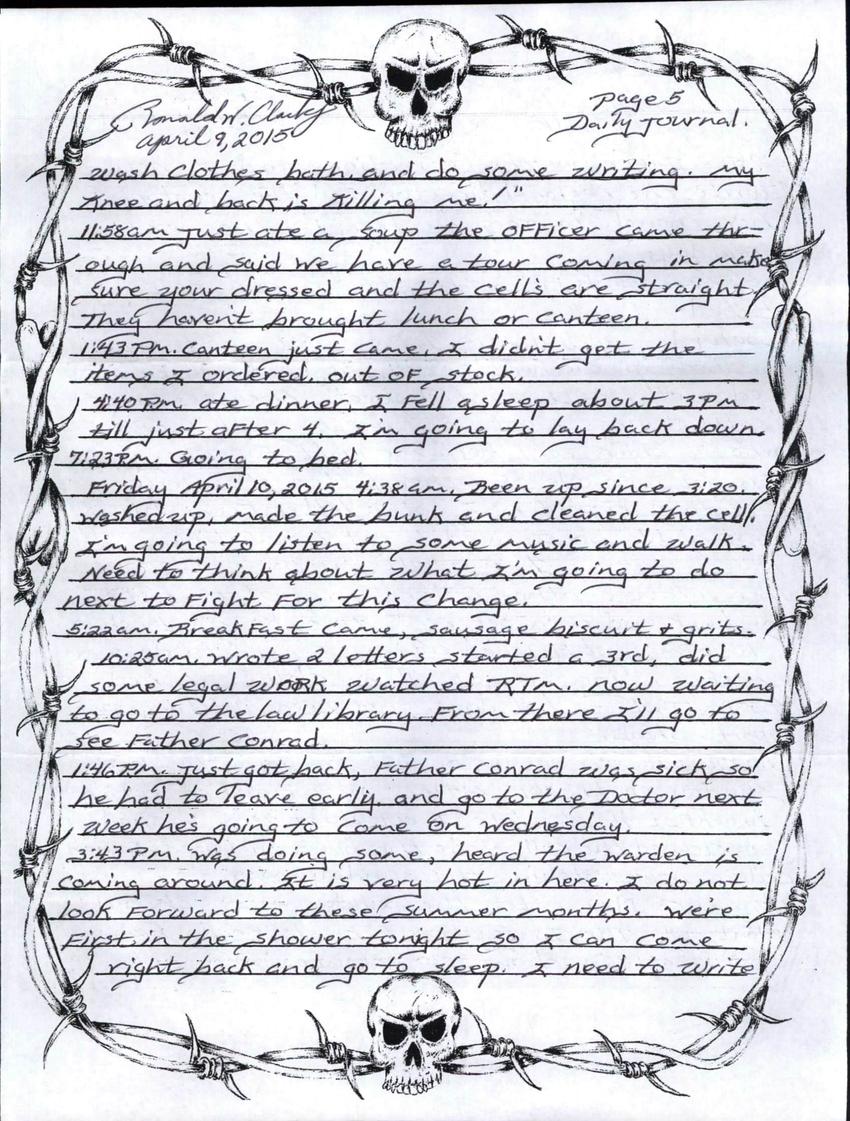 Ronald W. Clark Jr
April 9, 2015
page 5
Daily Journal.
wash clothes bath and do some writing. My
Knee and back is killing me!"
11:58am Just ate a soup the officer came thr-
ough and said we have a tour coming in make
sure your dressed and the cell's are straight
They haven't brought lunch or canteen.
1:43 PM. Canteen just came. I didn't get the
items I ordered, out of stock.
4:40 PM. ate dinner. I fell asleep about 3PM
till just after 4. I'm going to lay back down.
7:23PM. Going to bed.
Friday April 10, 2015 4:38am. Been up since 3:20.
Washed up, made the bunk and cleaned the cell.
I'm going to listen to some music and walk.
Need to think about what I'm going to do
next to Fight For this Change.
5:22am. Breakfast came, sausage biscuit & grits.
10:25am. wrote 2 letters started a 3rd, did
some legal work watched RTM. now waiting
to go to the law library. From there I'll go to
see Father Conrad.
1:46 PM. Just got back, Father Conrad was sick so
he had to leave early, and go to the Doctor next
week he's going to come on Wednesday.
3:43 PM. Was doing some, heard the warden is
coming around. It is very hot in here. I do not
look forward to these summer months. We're
First in the shower tonight so I can come
right back and go to sleep. I need to write